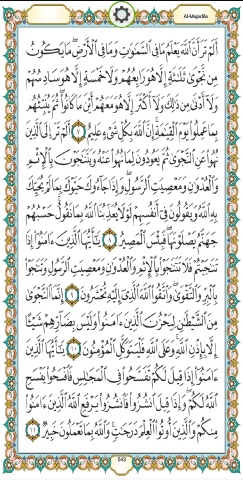 Al-Mujadila
أَلَمْ تَرَ أَنَّ ٱللَّهَ يَعْلَمُ مَا فِى ٱلسَّمَٰوَٰتِ وَمَا فِى ٱلْأَرْضِ ۖ مَا يَكُونُ
مِن نَّجْوَىٰ ثَلَٰثَةٍ إِلَّا هُوَ رَابِعُهُمْ وَلَا خَمْسَةٍ إِلَّا هُوَ سَادِسُهُمْ
وَلَآ أَدْنَىٰ مِن ذَٰلِكَ وَلَآ أَكْثَرَ إِلَّا هُوَ مَعَهُمْ أَيْنَ مَا كَانُوا۟ ۖ ثُمَّ يُنَبِّئُهُم
بِمَا عَمِلُوا۟ يَوْمَ ٱلْقِيَٰمَةِ ۚ إِنَّ ٱللَّهَ بِكُلِّ شَىْءٍ عَلِيمٌ ٧ أَلَمْ تَرَ إِلَى ٱلَّذِينَ
نُهُوا۟ عَنِ ٱلنَّجْوَىٰ ثُمَّ يَعُودُونَ لِمَا نُهُوا۟ عَنْهُ وَيَتَنَٰجَوْنَ بِٱلْإِثْمِ
وَٱلْعُدْوَٰنِ وَمَعْصِيَتِ ٱلرَّسُولِ وَإِذَا جَآءُوكَ حَيَّوْكَ بِمَا لَمْ يُحَيِّكَ
بِهِ ٱللَّهُ وَيَقُولُونَ فِىٓ أَنفُسِهِمْ لَوْلَا يُعَذِّبُنَا ٱللَّهُ بِمَا نَقُولُ ۚ حَسْبُهُمْ
جَهَنَّمُ يَصْلَوْنَهَا ۖ فَبِئْسَ ٱلْمَصِيرُ ٨ يَٰٓأَيُّهَا ٱلَّذِينَ ءَامَنُوٓا۟ إِذَا
تَنَٰجَيْتُمْ فَلَا تَتَنَٰجَوْا۟ بِٱلْإِثْمِ وَٱلْعُدْوَٰنِ وَمَعْصِيَتِ ٱلرَّسُولِ وَتَنَٰجَوْا۟
بِٱلْبِرِّ وَٱلتَّقْوَىٰ ۖ وَٱتَّقُوا۟ ٱللَّهَ ٱلَّذِىٓ إِلَيْهِ تُحْشَرُونَ ٩ إِنَّمَا ٱلنَّجْوَىٰ
مِنَ ٱلشَّيْطَٰنِ لِيَحْزُنَ ٱلَّذِينَ ءَامَنُوا۟ وَلَيْسَ بِضَآرِّهِمْ شَيْـًٔا
إِلَّا بِإِذْنِ ٱللَّهِ ۚ وَعَلَى ٱللَّهِ فَلْيَتَوَكَّلِ ٱلْمُؤْمِنُونَ ١٠ يَٰٓأَيُّهَا ٱلَّذِينَ
ءَامَنُوٓا۟ إِذَا قِيلَ لَكُمْ تَفَسَّحُوا۟ فِى ٱلْمَجَٰلِسِ فَٱفْسَحُوا۟ يَفْسَحِ
ٱللَّهُ لَكُمْ ۖ وَإِذَا قِيلَ ٱنشُزُوا۟ فَٱنشُزُوا۟ يَرْفَعِ ٱللَّهُ ٱلَّذِينَ ءَامَنُوا۟
مِنكُمْ وَٱلَّذِينَ أُوتُوا۟ ٱلْعِلْمَ دَرَجَٰتٍ ۚ وَٱللَّهُ بِمَا تَعْمَلُونَ خَبِيرٌ ١١
543